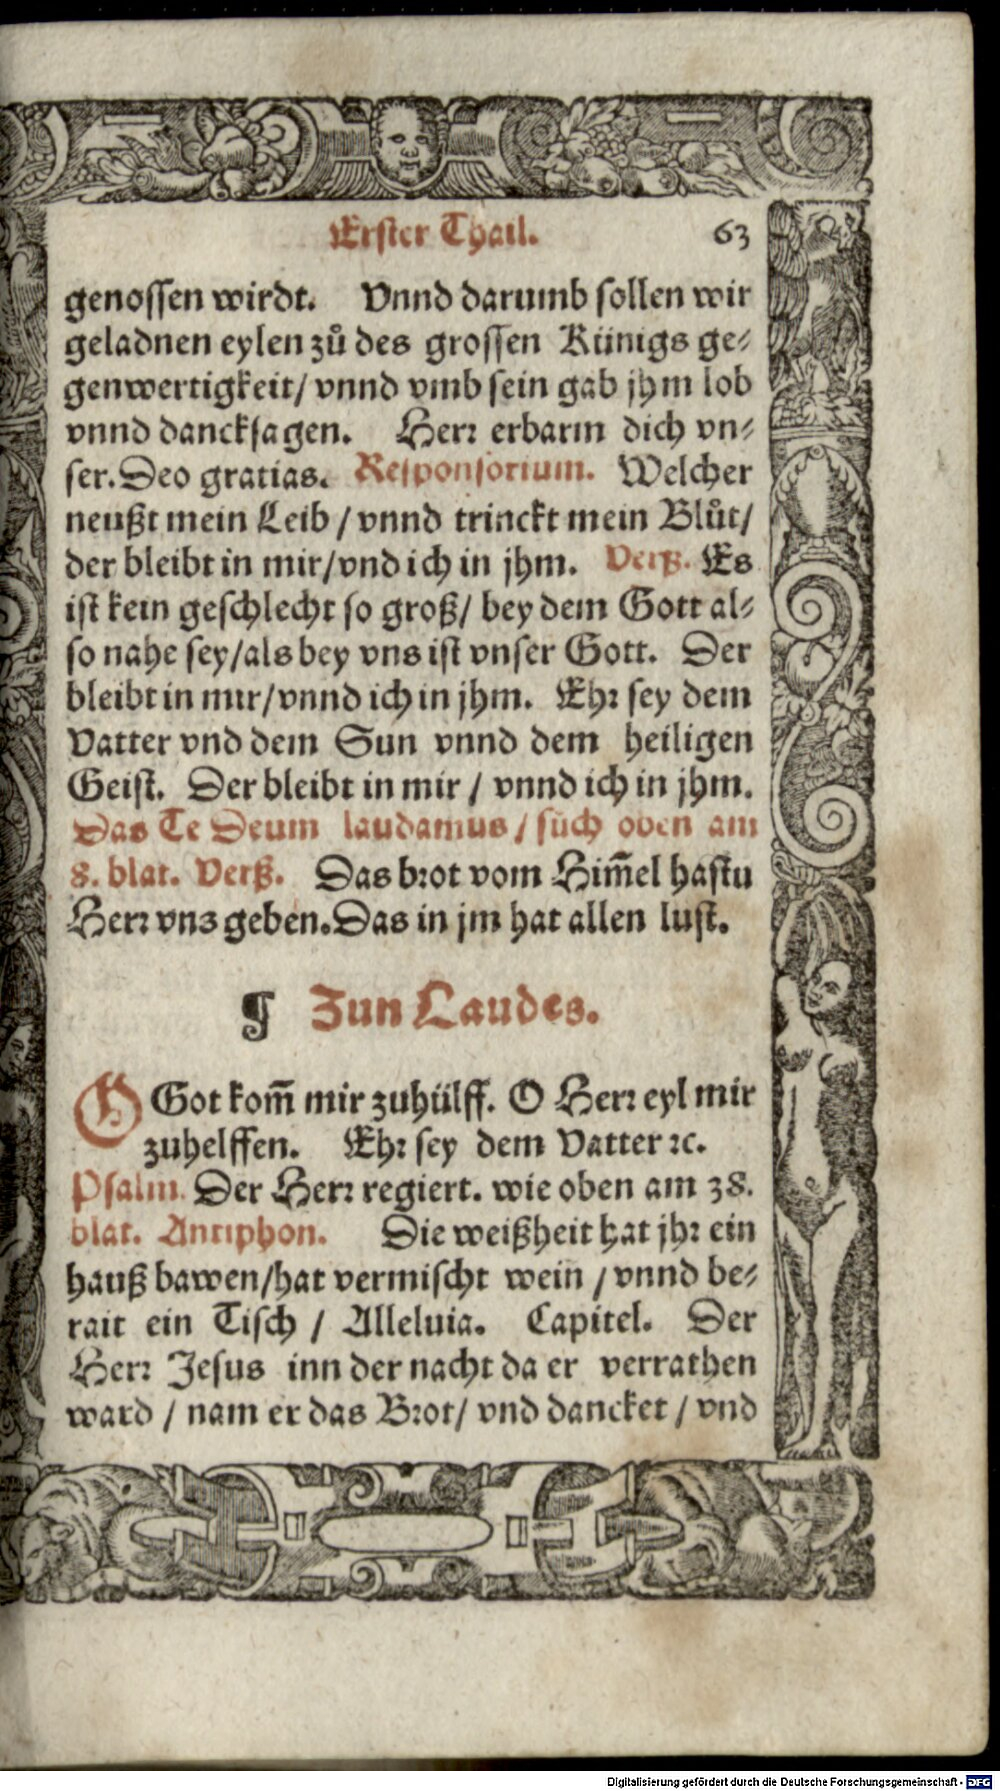 Erster Thail. 63
genossen wirdt. Vnnd darumb sollen wir
geladnen eylen zů des grossen Künigs ge⸗
genwertigkeit/ vnnd vmb sein gab jhm lob
vnnd dancksagen. Herr erbarm dich vn⸗
ser. Deo gratias. Responsorium. Welcher
neußt mein Leib / vnnd trinckt mein Blůt/
der bleibt in mir/vnd ich in jhm. Verß. Es
ist kein geschlecht so groß/ bey dem Gott al⸗
so nahe sey/als bey vns ist vnser Gott. Der
bleibt in mir/vnnd ich in jhm. Ehr sey dem
Vatter vnd dem Sun vnnd dem heiligen
Geist. Der bleibt in mir / vnnd ich in jhm.
Das Te Deum laudamus / sůch oben am
8. blat. Verß. Das brot vom Him̃el hastu
Herr vns geben. Das in jm hat allen lust.
¶ Zun Laudes.
O Got kom̃ mir zuhülff. O Herr eyl mir
zuhelffen. Ehr sey dem Vatter ꝛc.
Psalm. Der Herr regiert. wie oben am 38.
blat. Antiphon. Die weißheit hat jhr ein
hauß bawen/hat vermischt wein / vnnd be⸗
rait ein Tisch / Alleluia. Capitel. Der
Herr Jesus inn der nacht da er verrathen
ward / nam er das Brot/ vnd dancket / vnd
Digitalisierung gefördert durch die Deutsche Forschungsgemeinschaft - DFG